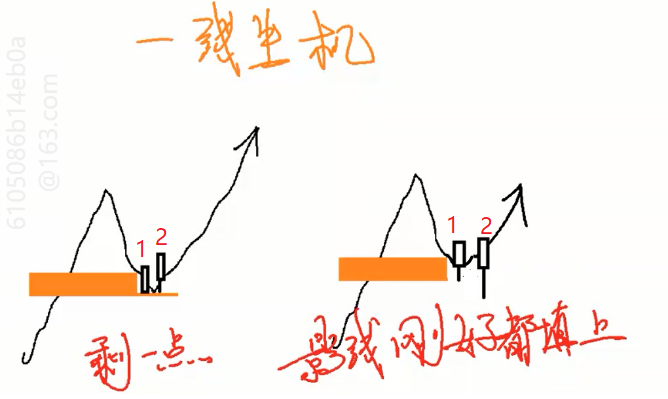 一线生机
6105086b14eb0a
@163.com
1 2
1 2
剩一点
影线刚好都填上